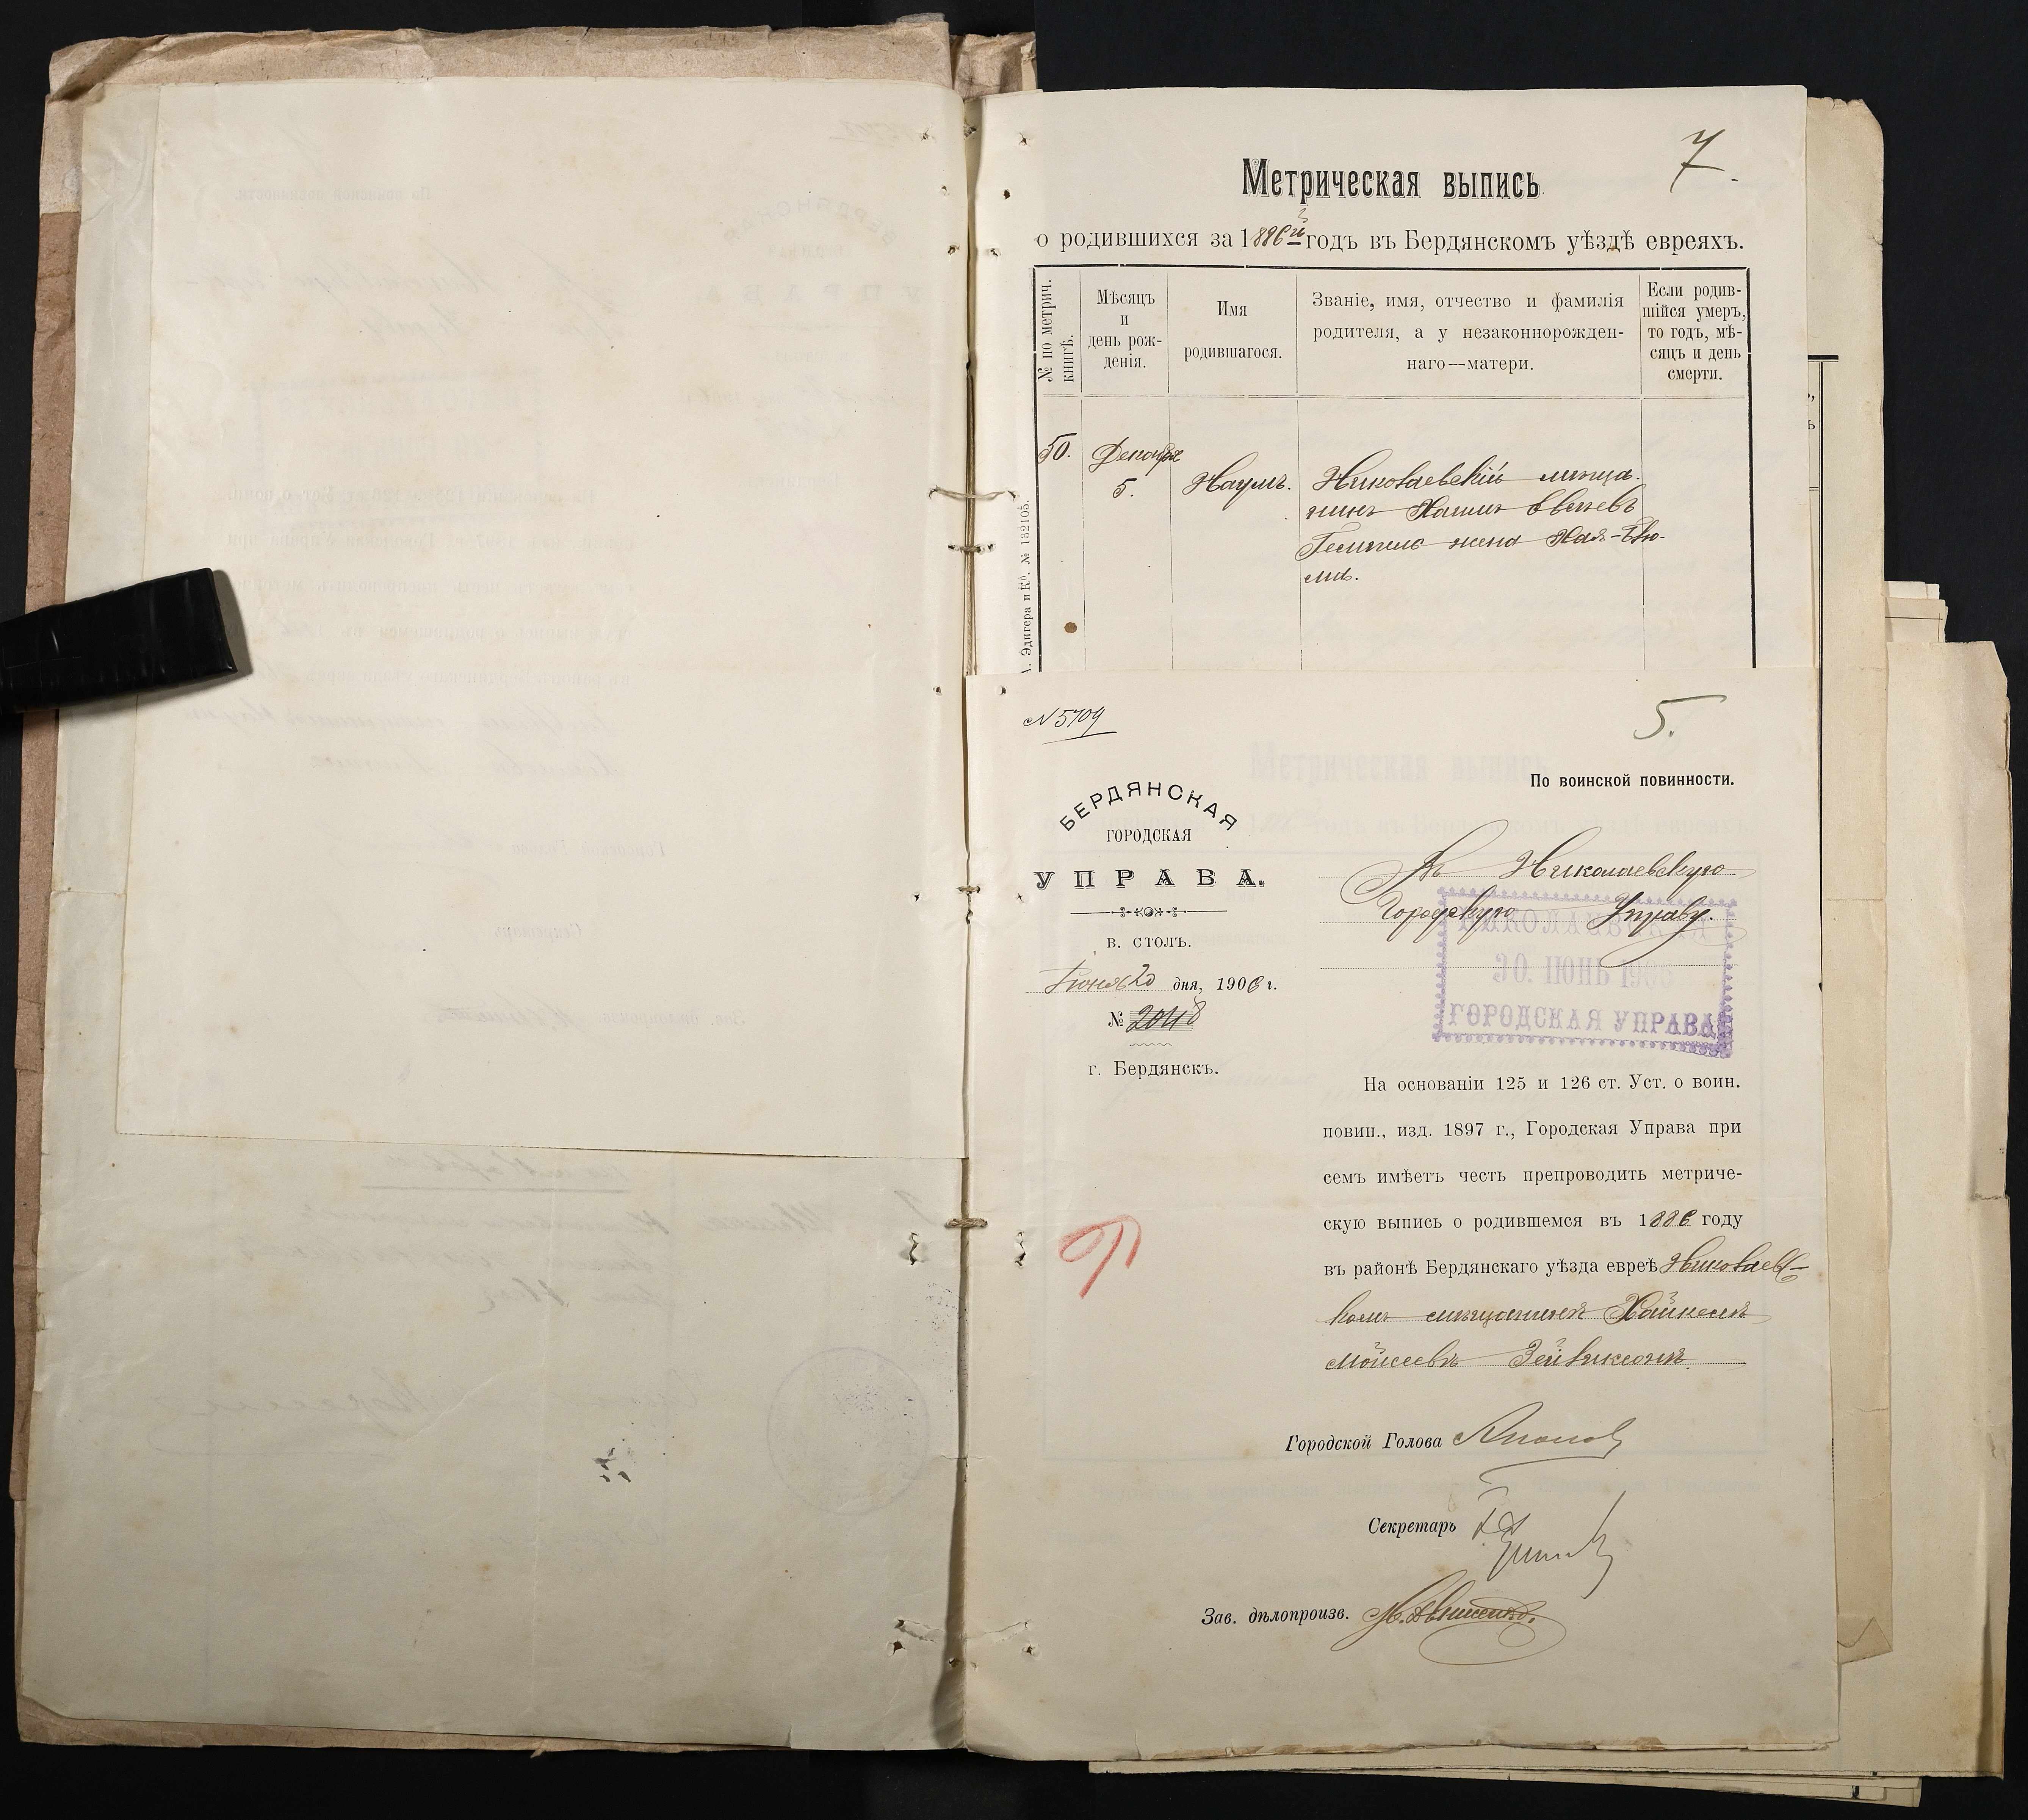 7.
Метрическая выпись
о родившихся за 1886й годъ въ Бердянскомъ уѣздѣ евреяхъ.
№ по метрич. книгѣ.
Мѣсяцъ и день рожденія.
Имя родившагося.
Званіе, имя, отчество и фамилія родителя, а у незаконнорожденнаго—матери.
Если родившійся умеръ, то годъ, мѣсяцъ и день смерти.
50.
Декабря
5.
Наумъ.
Николаевскій мѣща-
нинъ
жена Хая-
Эдигера и Ко. № 13210б.
N 5709
5.
По воинской повинности.
БЕРДЯНСКАЯ
ГОРОДСКАЯ
УПРАВА.
в. столъ.
Іюня 20 дня, 1906 г.
№ 2048
г. Бердянскъ.
Въ Николаевскую
Городскую Управу.
НИКОЛАЕВСКАЯ
30. ІЮНЬ 1906
ГОРОДСКАЯ УПРАВА
На основаніи 125 и 126 ст. Уст. о воин.
повин., изд. 1897 г., Городская Управа при
семъ имѣетъ честь препроводить метриче-
скую выпись о родившемся въ 1886 году
въ районѣ Бердянскаго уѣзда евреѣ Николаевс-
комъ мѣщанинѣ
Мойсеевѣ
Городской Голова
Секретарь
Зав. дѣлопроизв.